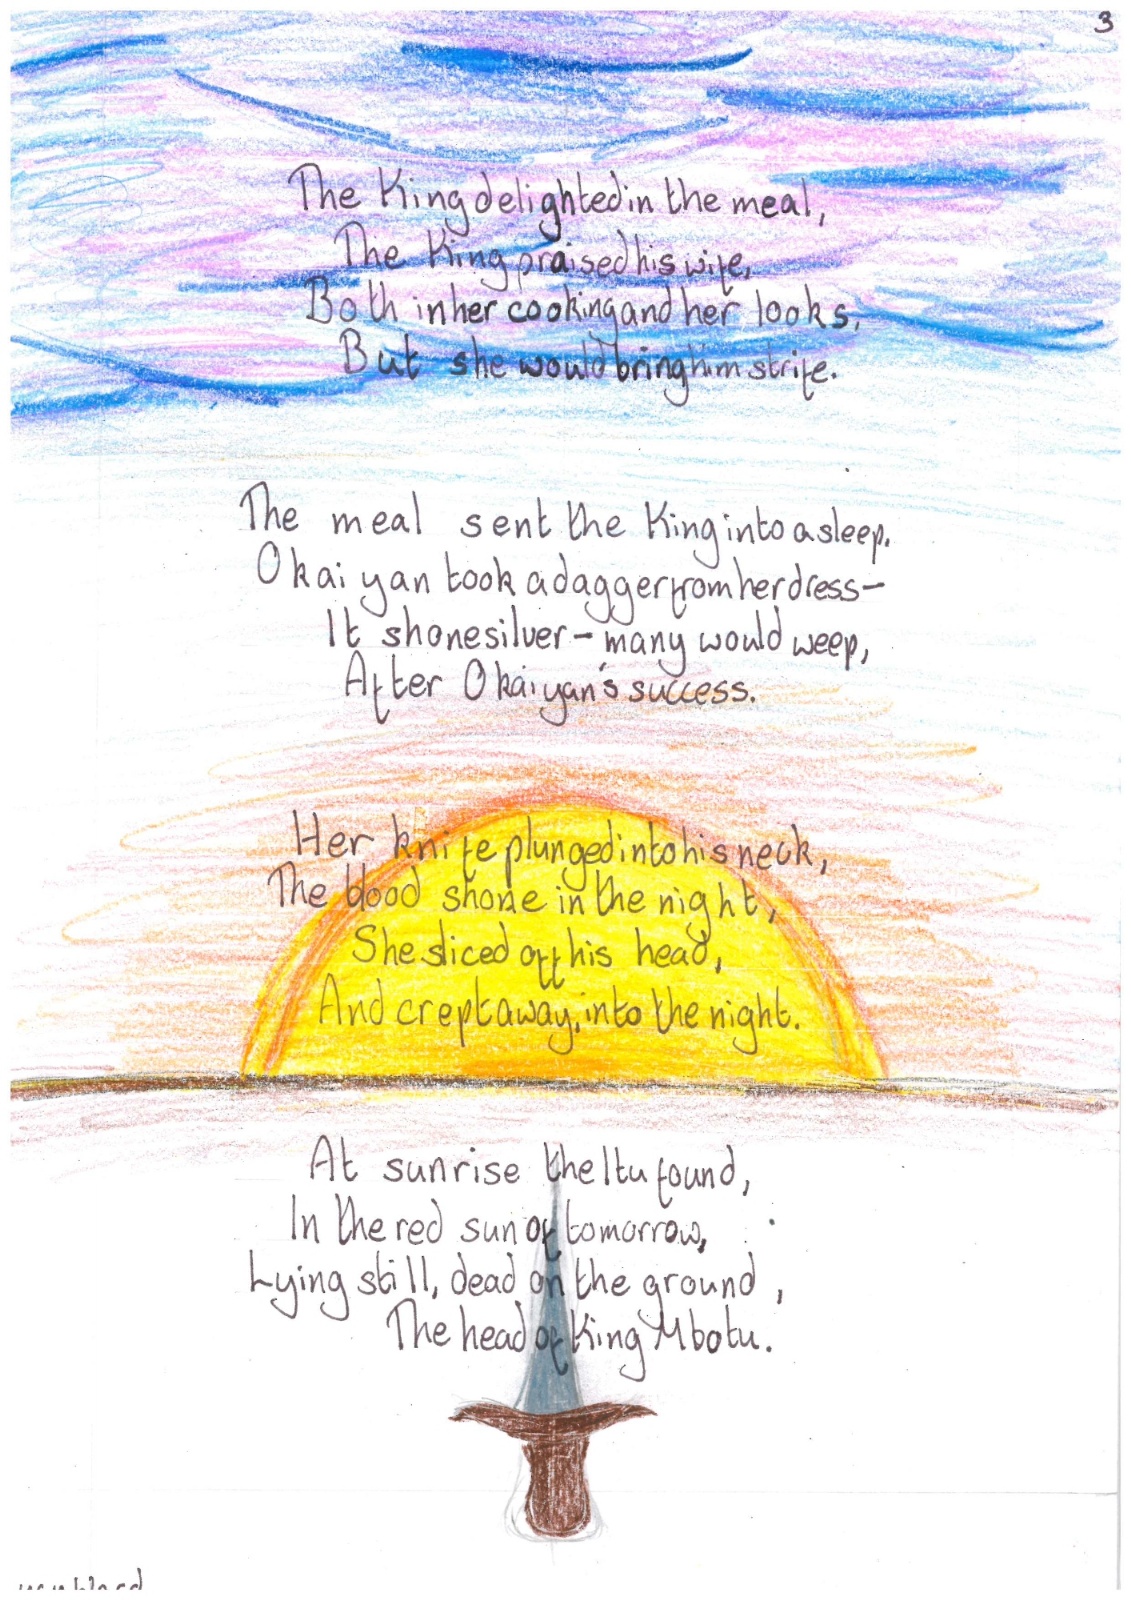 3
The King delighted in the meal,
The King praised his wife,
Both in her cooking and her looks,
But she would bring him strife.
The meal sent the King into a sleep.
Okaiyan took a dagger from her dress-
It shone silver - many would weep,
After Okaiyan's success.
Her knife plunged into his neck,
The blood shone in the night,
She sliced off his head,
And crept away, into the night.
At sunrise the Itu found,
In the red sun of tomorrow,
Lying still, dead on the ground,
The head of King Mbotu.